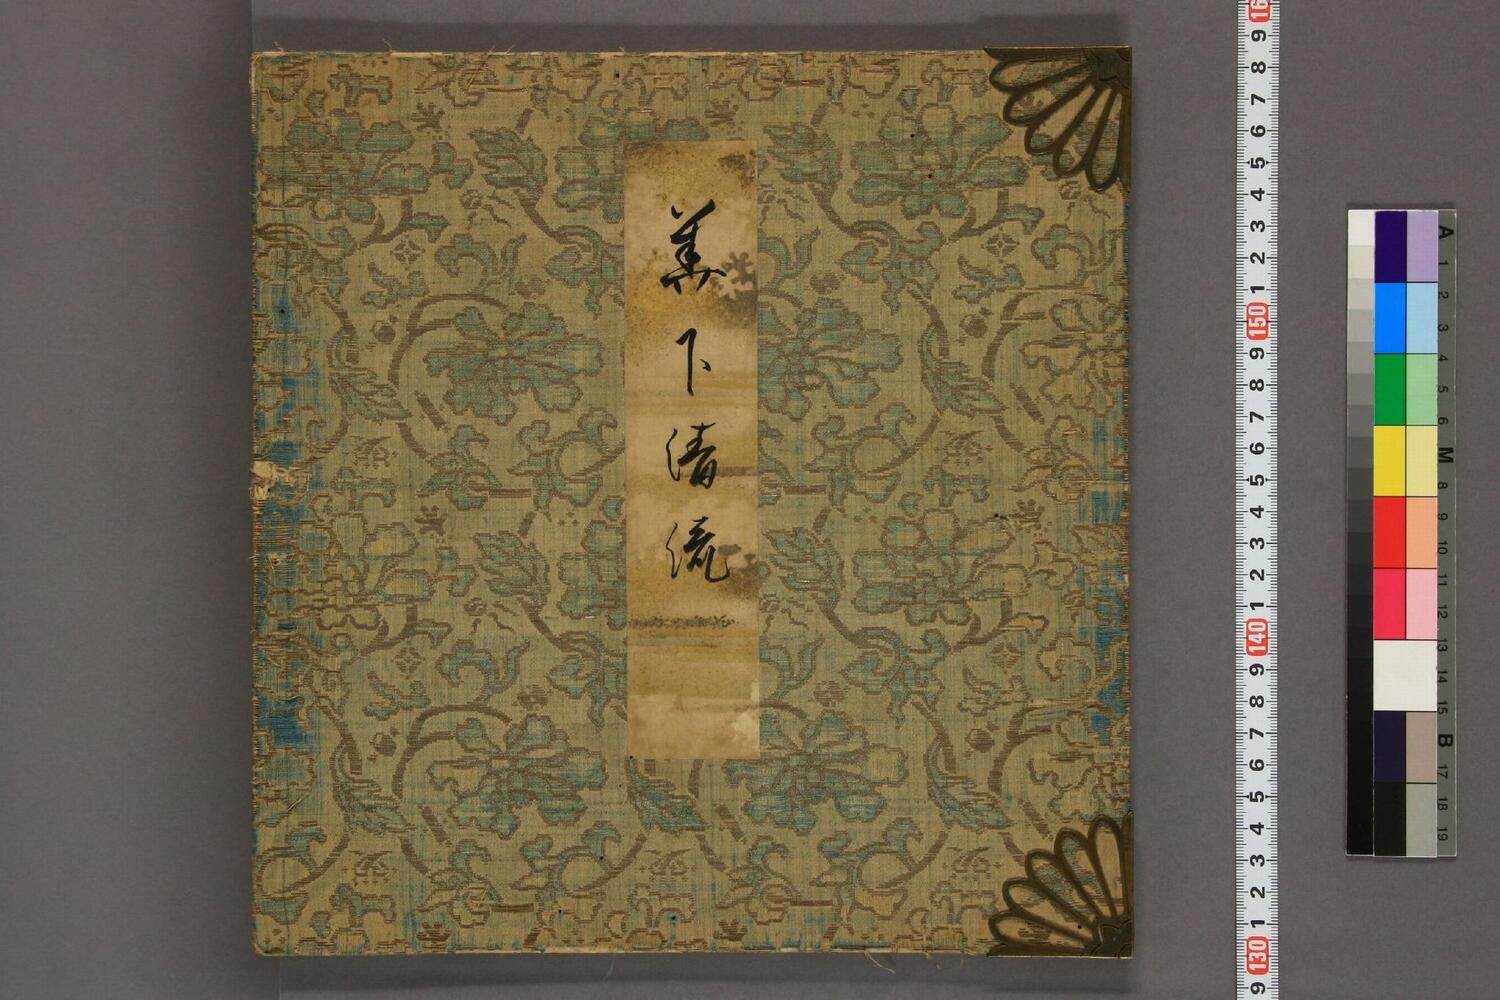 美下清流
16
9
8
7
6
5
4
3
2
1
150
9
8
7
6
5
4
3
2
1
140
9
8
7
6
5
4
3
2
1
130
9
A
1
2
3
4
5
6
M
8
9
10
11
12
13
14
15
B
17
18
19